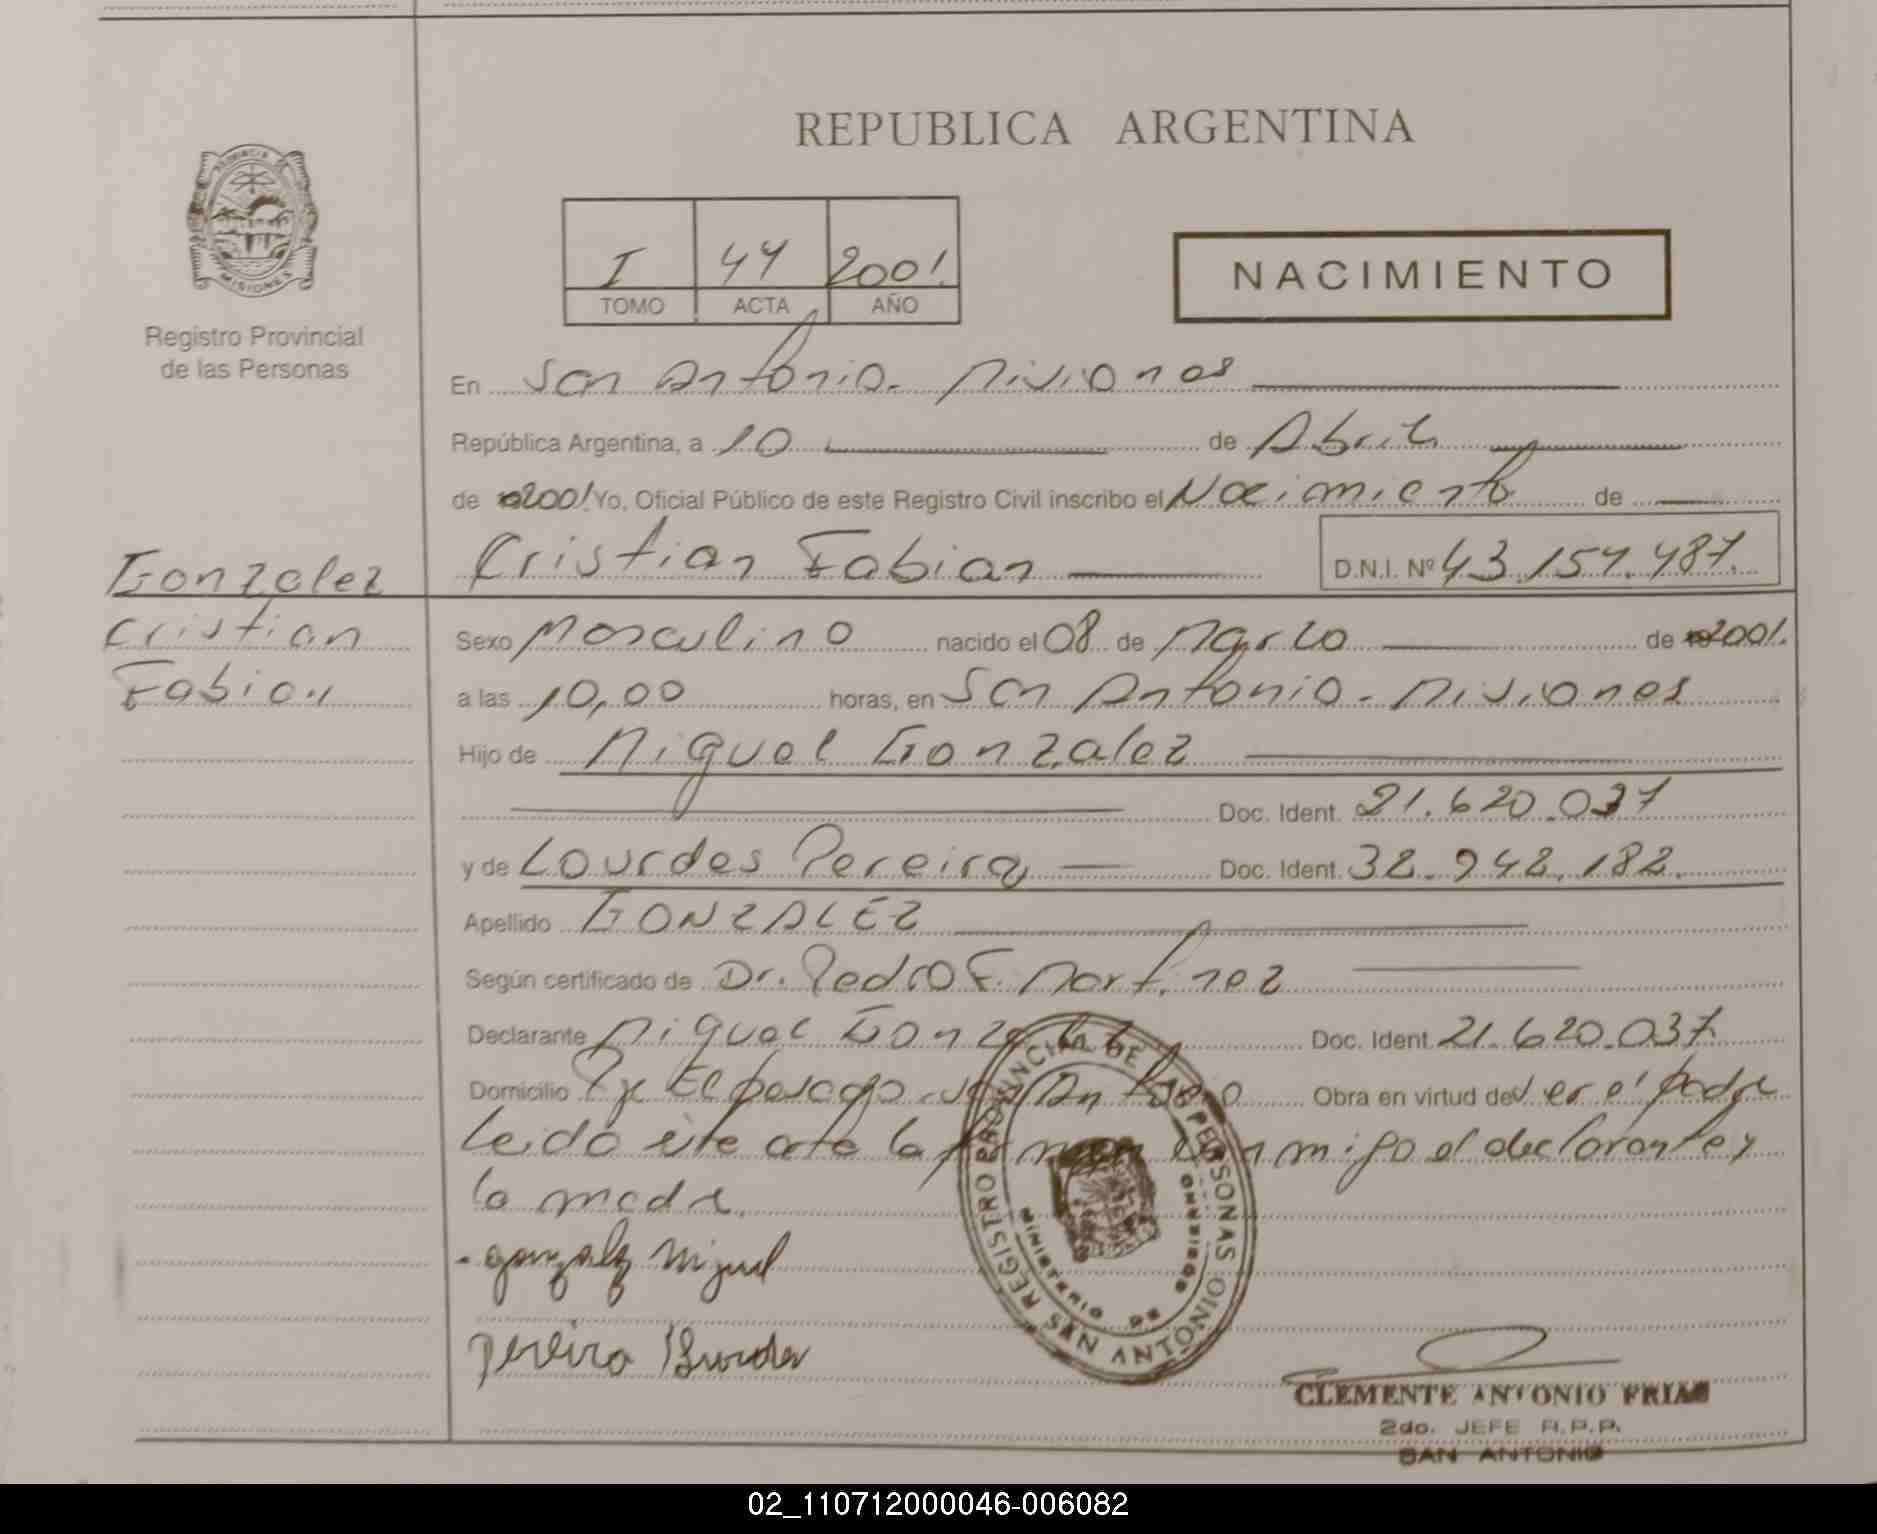 REPUBLICA ARGENTINA
PROVINCIA DE MISIONES
Registro Provincial
de las Personas
I 44 2001.
TOMO ACTA AÑO
NACIMIENTO
En San Antonio. Misiones
República Argentina, a 10 de Abril
de 2001. Yo, Oficial Público de este Registro Civil inscribo el Nacimiento de
Cristian Fabian D.N.I. Nº 43.154.487.
Gonzalez
Cristian
Fabian
Sexo Masculino nacido el 08 de Marzo de 2001.
a las 10,00 horas, en San Antonio - Misiones
Hijo de Miguel Gonzalez
Doc. Ident. 21.620.037
y de Lourdes Pereira Doc. Ident. 32.942.182.
Apellido GONZALEZ
Según certificado de Dr. Pedro F. Martinez
Declarante Miguel Gonzalez Doc. Ident. 21.620.037
Domicilio San Antonio Obra en virtud de ser el padre
Leido este acta la firman conmigo el declarante y
la madre.
- Gonzalez Miguel
Pereira Lourdes
REGISTRO PROVINCIAL DE LAS PERSONAS
SAN ANTONIO
MINISTERIO DE GOBIERNO
CLEMENTE ANTONIO FRIAS
2do. JEFE R.P.P.
SAN ANTONIO
02_110712000046-006082